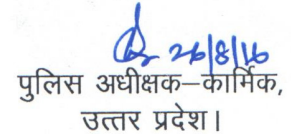 26/8/16
पुलिस अधीक्षक–कार्मिक,
उत्तर प्रदेश।